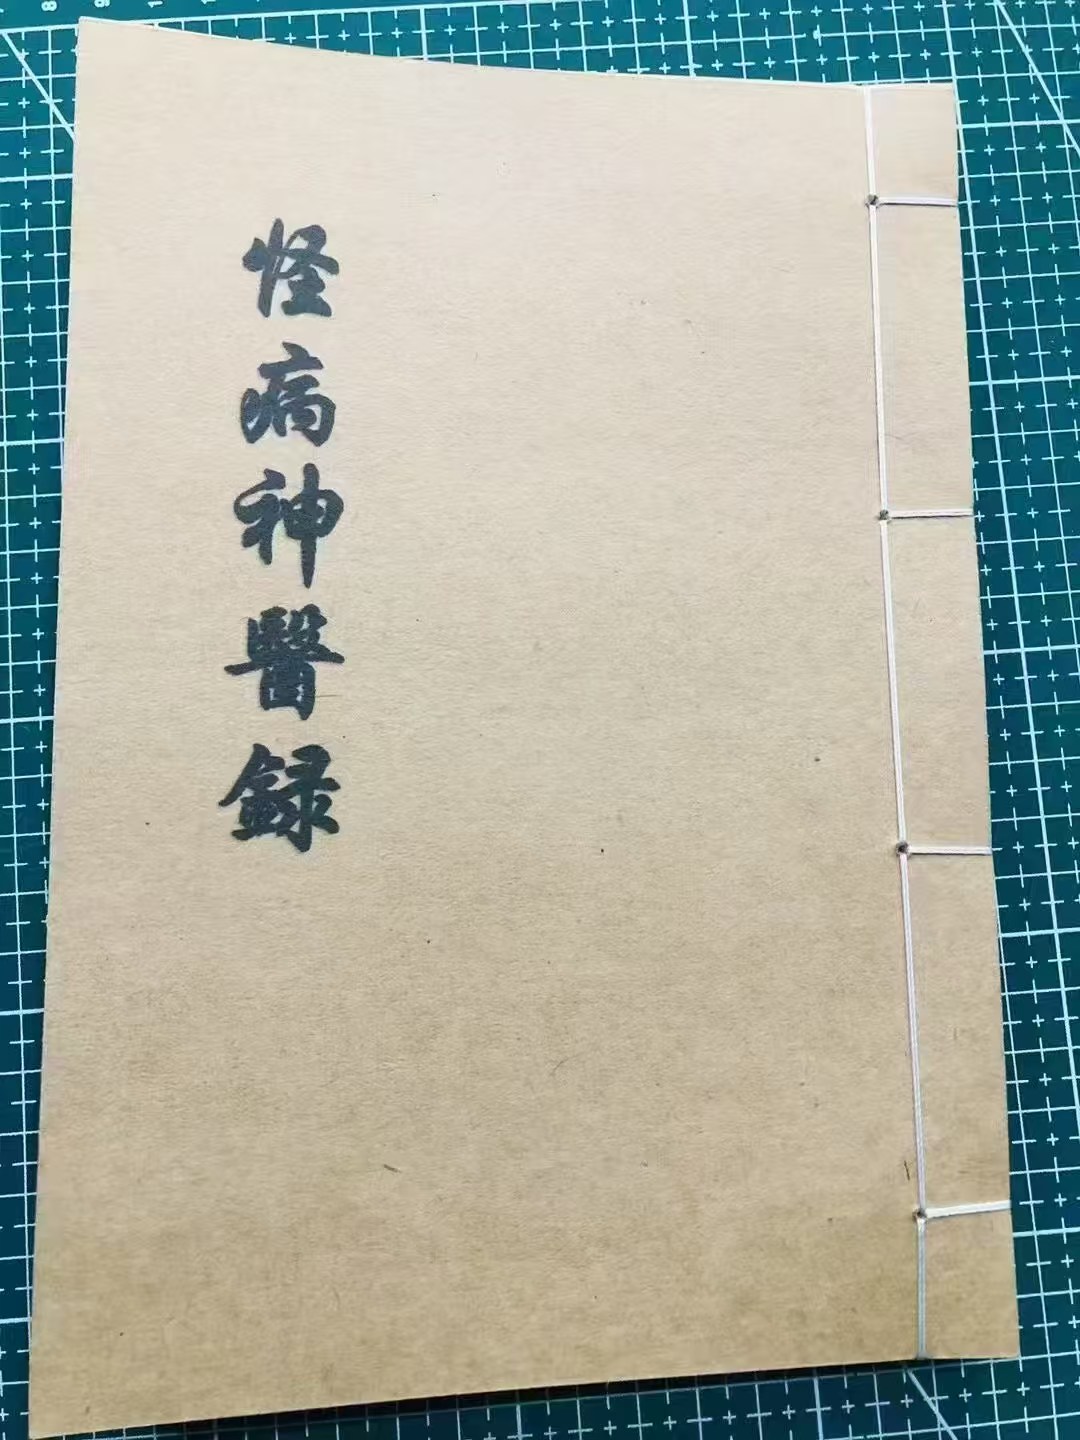 怪病神醫録